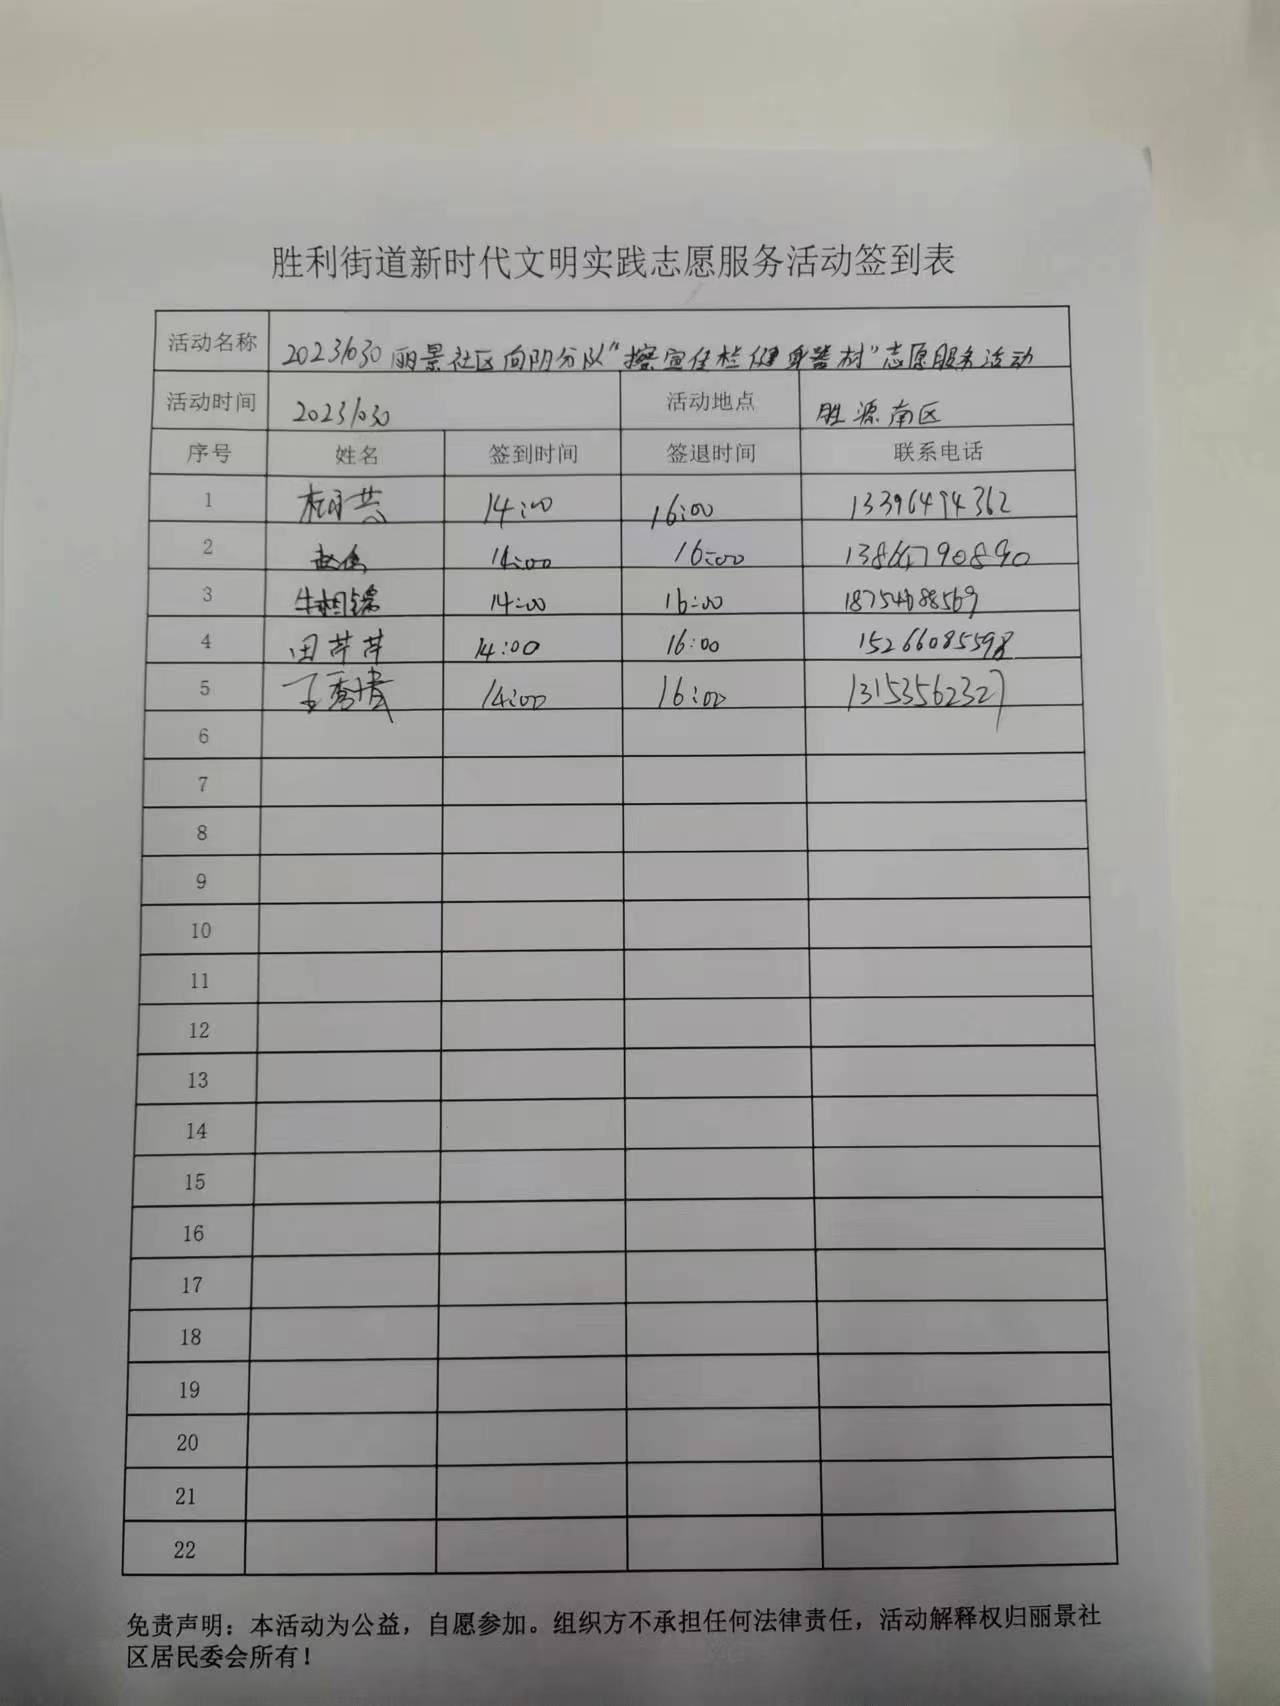 胜利街道新时代文明实践志愿服务活动签到表
活动名称 20231030丽景社区向阴分队“擦宣传栏健身器材”志愿服务活动
活动时间 20231030 活动地点 胜源南区
序号 姓名 签到时间 签退时间 联系电话
1 14:00 16:00 13396494362
2 14:00 16:00 13864790890
3 牛相锦 14:00 16:00 18754688569
4 田芹芹 14:00 16:00 15266085598
5 王秀 14:00 16:00 13153562327
6
7
8
9
10
11
12
13
14
15
16
17
18
19
20
21
22
免责声明：本活动为公益，自愿参加。组织方不承担任何法律责任，活动解释权归丽景社
区居民委会所有！